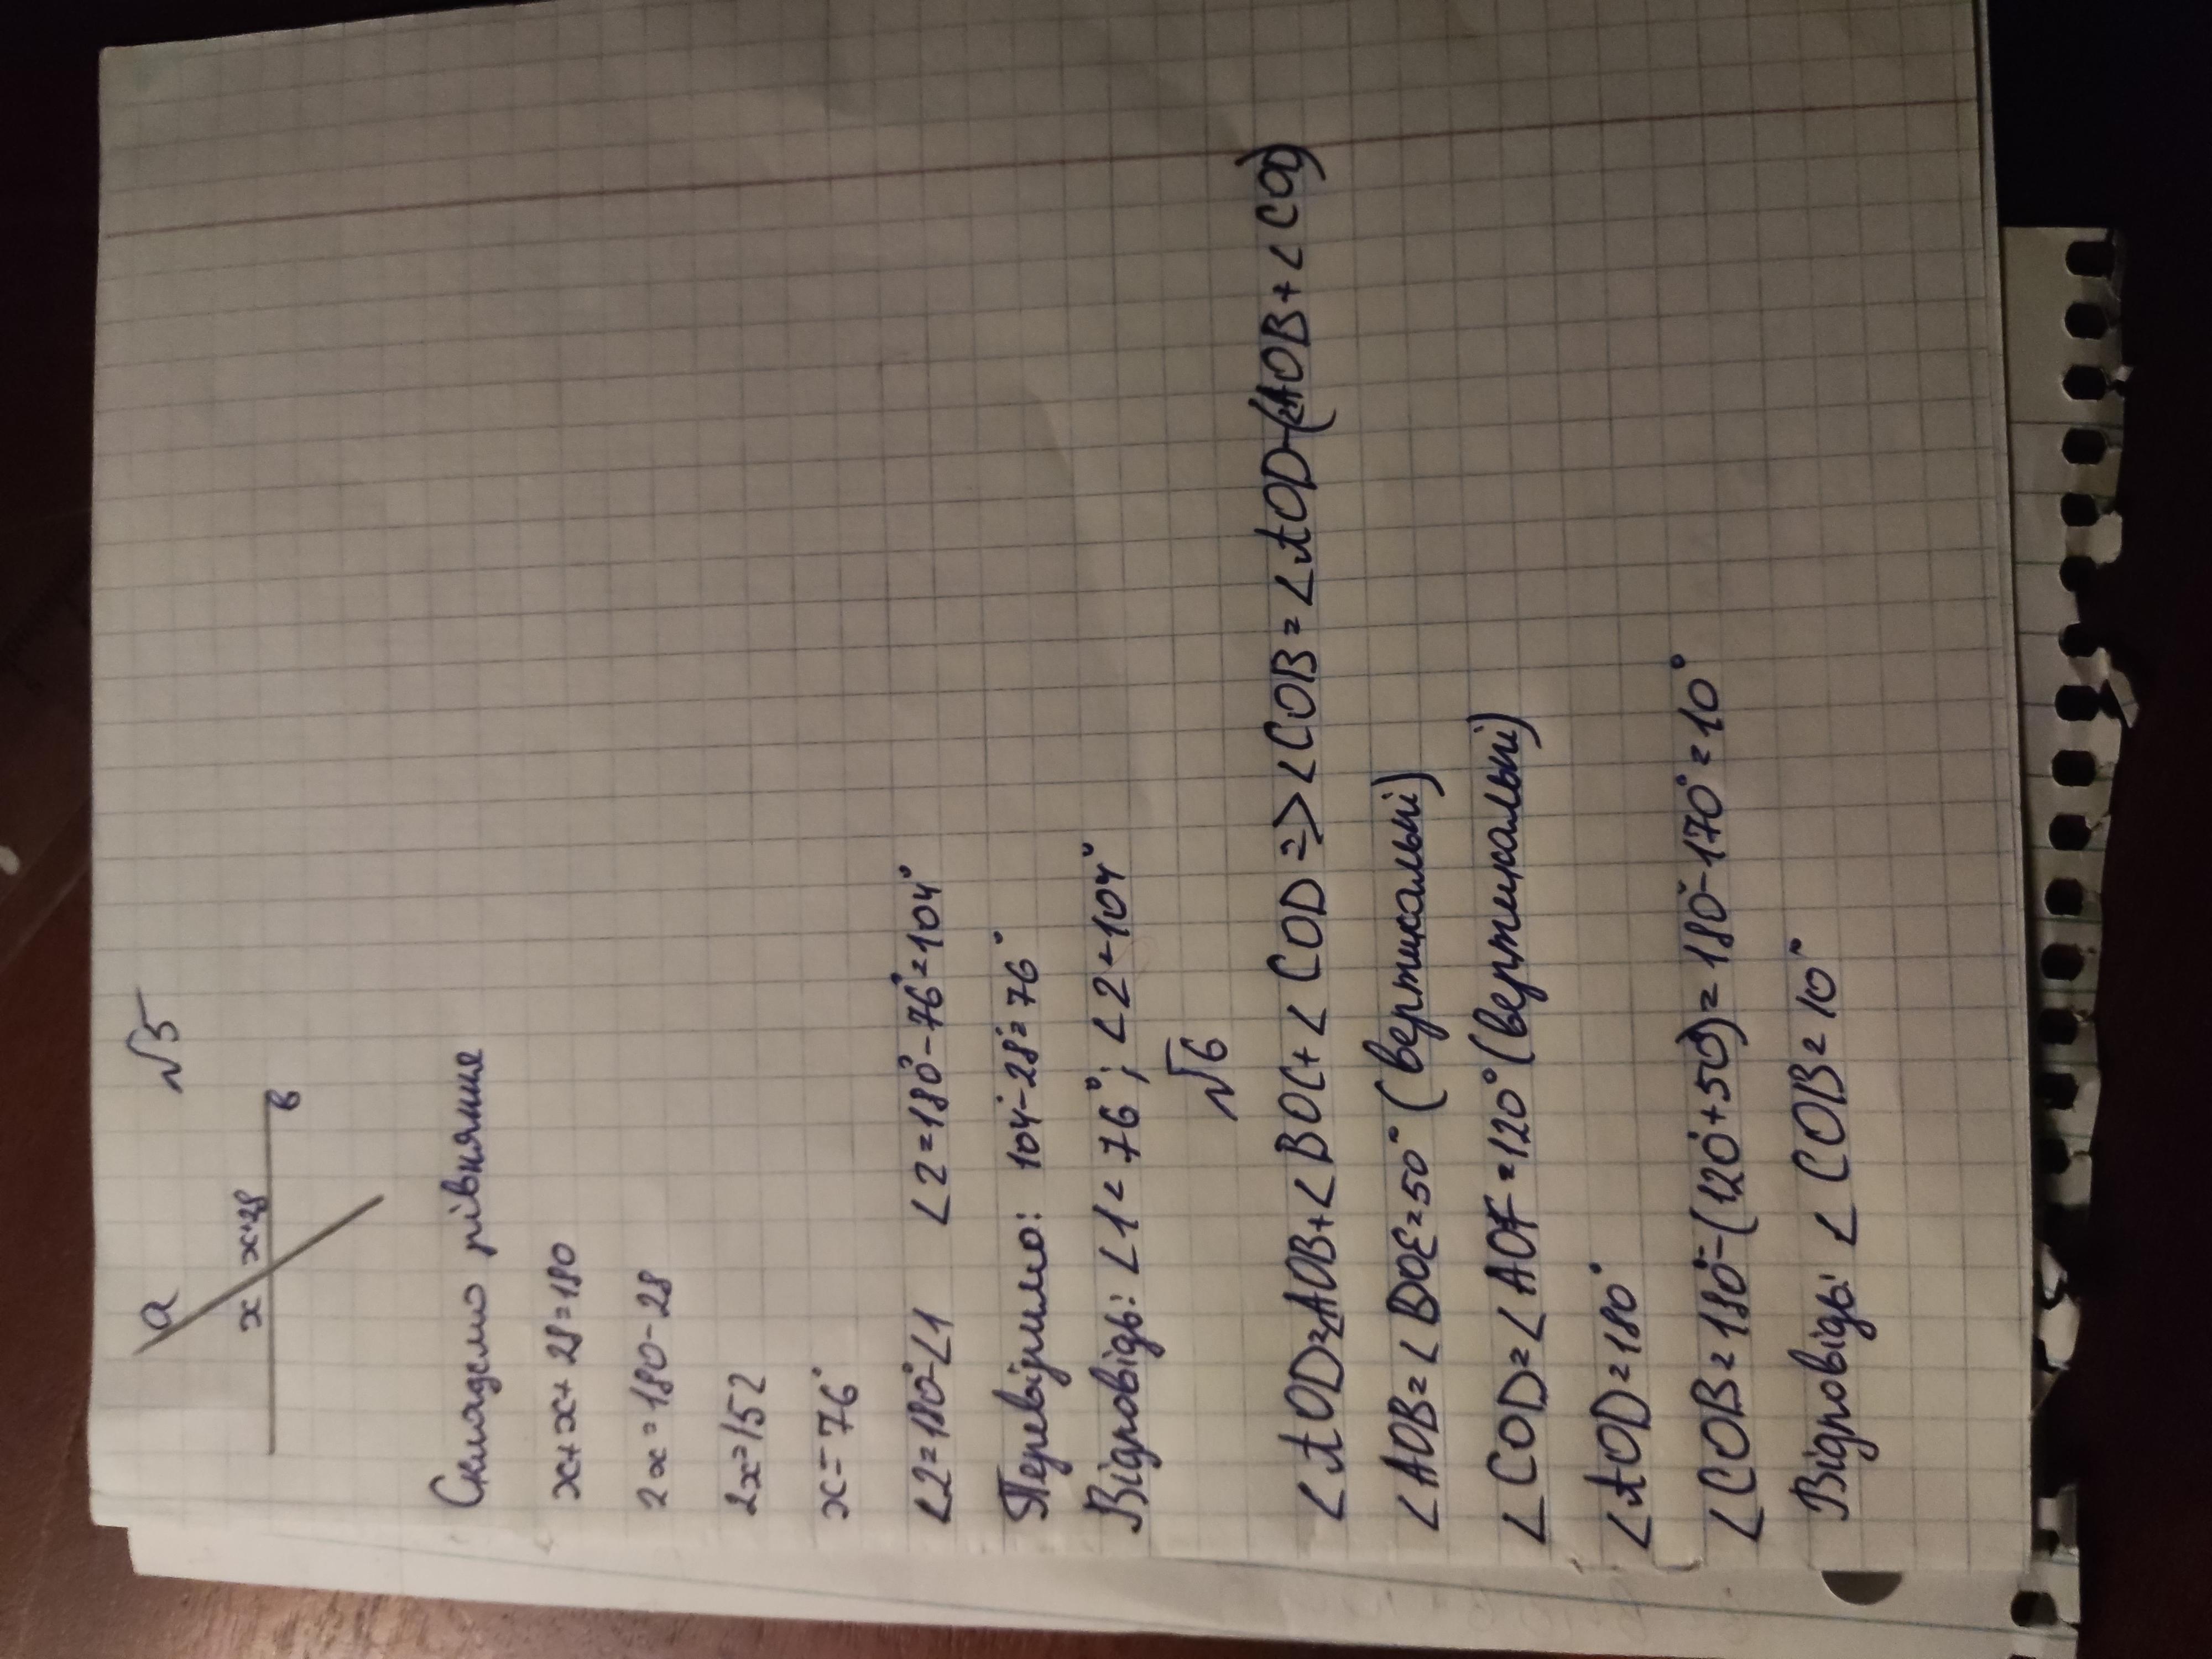 №5
a
x x+28
в
Складемо рівняння
x+x+28=180
2x=180-28
2x=152
x=76°
∠2=180°-∠1 ∠2=180°-76°=104°
Перевіримо: 104°-28°=76°
Відповідь: ∠1=76°; ∠2=104°
№6
∠AOD=∠AOB+∠BOC+∠COD => ∠COB=∠AOD-(∠AOB+∠COD)
∠AOB=∠DOE=50° (вертикальні)
∠COD=∠AOF=120° (вертикальні)
∠AOD=180°
∠COB=180°-(120°+50°)=180°-170°=10°
Відповідь: ∠COB=10°